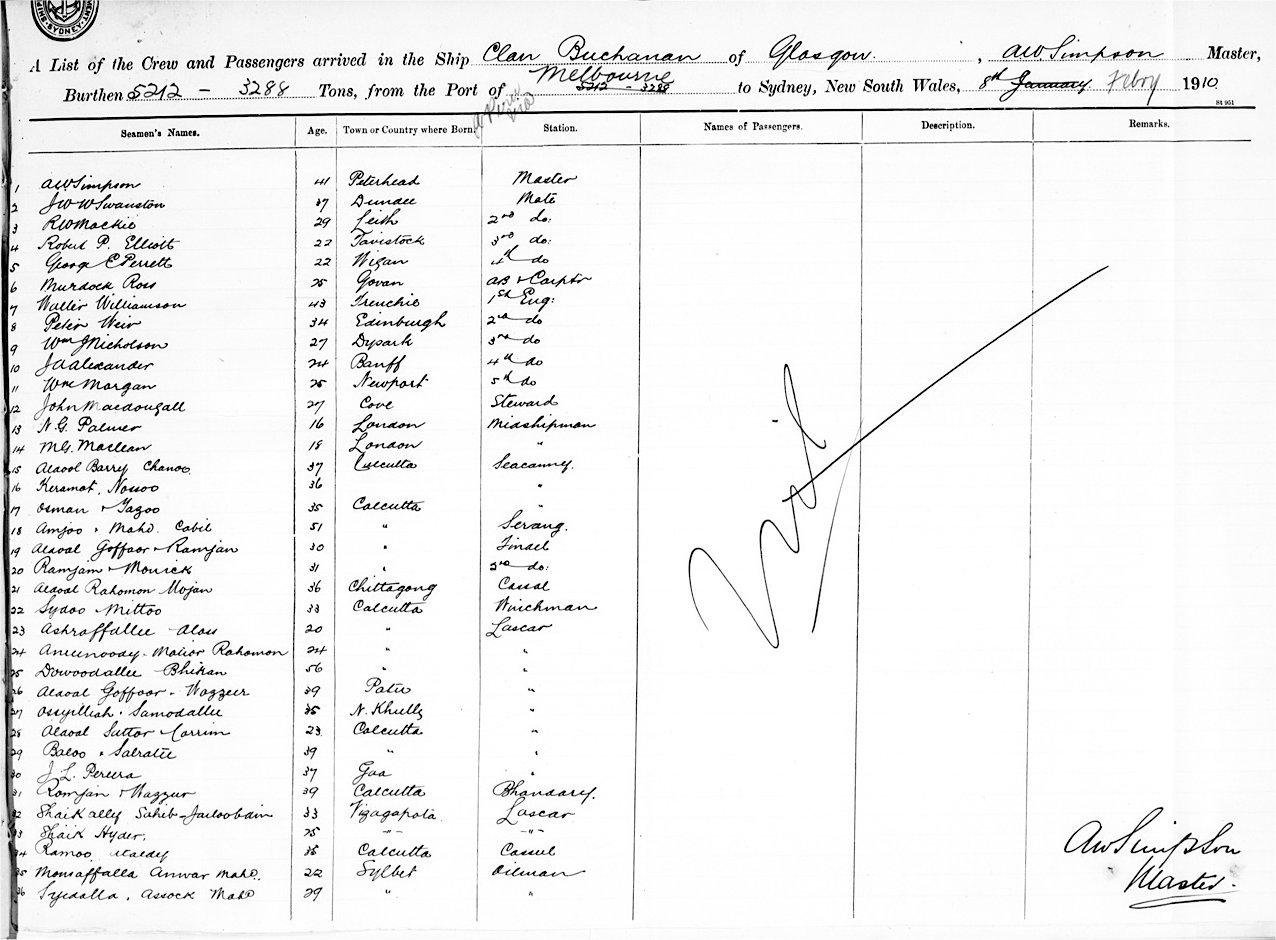 SYDNEY
A List of the Crew and Passengers arrived in the Ship Clan Buchanan of Glasgow. , AW Simpson Master,
Burthen 5212 - 3288 Tons, from the Port of Melbourne 5212 - 3288 to Sydney, New South Wales, 8th January Febry 1910
St 951
Seamen's Names. Age. Town or Country where Born. Station. Names of Passengers. Description. Remarks.
1 AW Simpson 41 Peterhead Master
2 JWW Swanston 37 Dundee Mate
3 RW Mackie 29 Leith 2nd do:
4 Robert P. Elliott 22 Tavistock 3rd do:
5 George C Perrett 22 Wigan 4th do
6 Murdock Ross 25 Govan AB & Carptr
7 Walter Williamson 43 Freuchie 1st Eng:
8 Peter Weir 34 Edinburgh 2nd do
9 Wm J Nicholson 27 Dysark 3rd do
10 JA Alexander 24 Banff 4th do
11 Wm Morgan 25 Newport 5th do
12 John Macdougall 27 Cove Steward
13 N.G. Palmer 16 London Midshipman
14 M.G. Maclean 18 London "
15 Alaool Barry Chanoo 37 Calcutta Seacunny.
16 Keramat, Nossoo 36 "
17 Osman & Yagoo 35 Calcutta "
18 Amjoo & Mahd. Cabil 51 " Serang.
19 Alaoal Goffoor & Ramjan 30 " Tindel
20 Ramjam & Monick 31 " 2nd do:
21 Alaoal Rahomon Mojan 36 Chittagong Cassal
22 Sydoo & Mittoo 33 Calcutta Winchman
23 Ashraffallee Aloss 20 " Lascar
24 Ameenoody - Molior Rahomon 24 " "
25 Dowoodallee Bhikan 56 " "
26 Alaoal Goffoor - Wazzeer 39 "
27 Samodallee 35 N. Khully "
28 Alaoal Suttor Corrim 23 Calcutta "
29 Baloo & Salratie 39 " "
30 J. L. Pereira 37 Goa "
31 Romjan & Wazzur 39 Calcutta Bhandary.
32 Shaik ally Sahib 33 Vizagapota Lascar
33 Shaik Hyder, 25 " "
34 Ramoo 35 Calcutta Cassul
35 Monsaffalla Anwar Mahd. 22 Sylhet Oilman
36 Syedalla, Assock Mahd 29 " "
Nil
AW Simpson
Master.